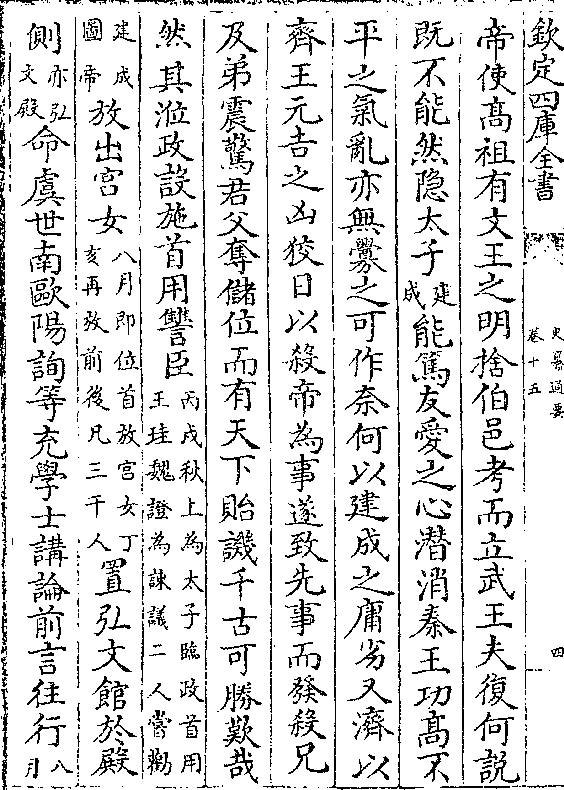 欽定四庫全書
史纂通要
卷十五
四
帝使髙祖有文王之明捨伯邑考而立武王夫復何説
既不能然隠太子建成能篤友愛之心潛消秦王功髙不
平之氣亂亦無釁之可作奈何以建成之庸劣又濟以
齊王元吉之凶狡日以殺帝為事遂致先事而發殺兄
及弟震驚君父奪儲位而有天下貽譏千古可勝歎哉
然其涖政設施首用讐臣丙戌秋上為太子臨政首用王珪魏證為諫議二人嘗勸
建成圖帝放出宫女八月即位首放宫女丁亥再放前後凡三千人置弘文館於殿
側亦弘文殿命虞世南歐陽詢等充學士講論前言往行八月